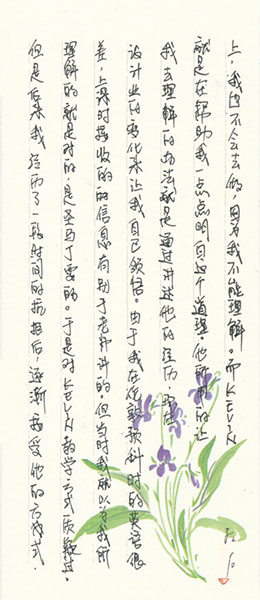 上，我也不会去做，因为我不能理解。而KELIN
就是在帮助我一点点明白这个道理。他所用的让
我去理解的办法就是通过讲述他的经历、
设计业的变化来让我自己领悟。由于我在优联预科时的英语很
差，上课时接收的的信息有别于老师讲的。但当时我所以为我所
理解的就是对的，是圣马丁要的。于是对KELIN教学方式质疑过。
但是后来我经历了一段时间的抗拒后，逐渐接受他的方式。